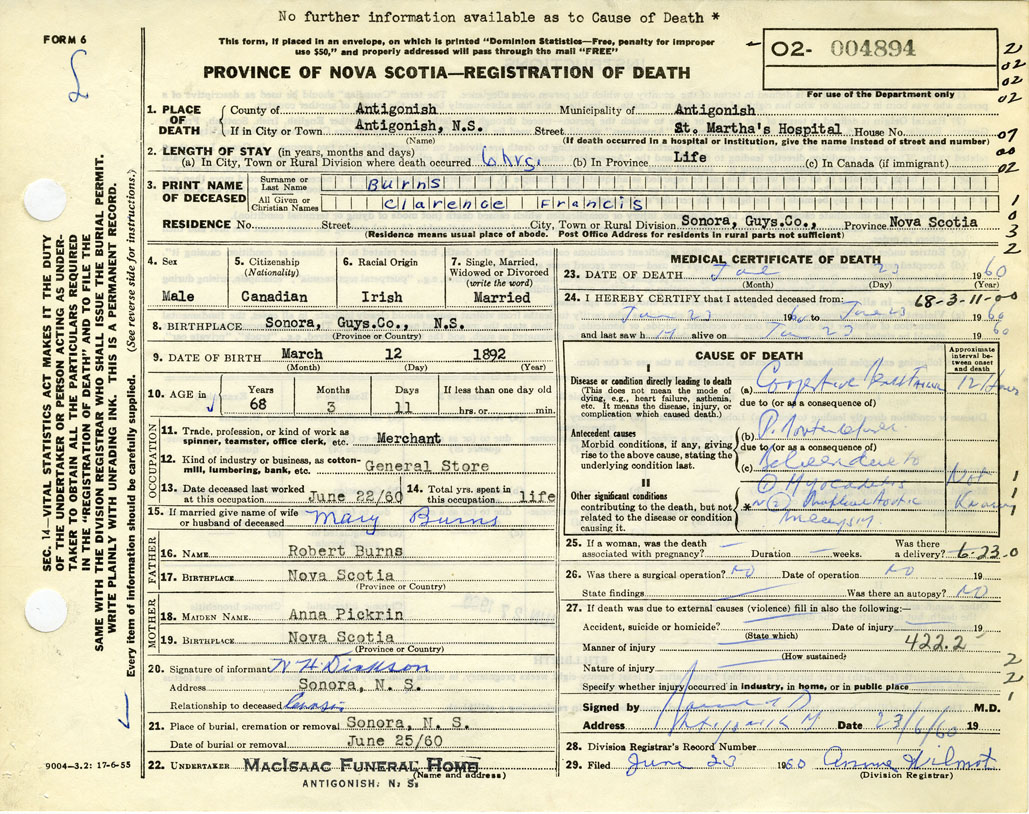 No further information available as to Cause of Death *
FORM 6
This form, if placed in an envelope, on which is printed "Dominion Statistics—Free, penalty for improper
use $50," and properly addressed will pass through the mail "FREE"
02- 004894
For use of the Department only
PROVINCE OF NOVA SCOTIA—REGISTRATION OF DEATH
2
02
02
02
1. PLACE OF DEATH
County of Antigonish Municipality of Antigonish
If in City or Town Antigonish, N.S. Street St. Martha's Hospital House No.
(Name) (If death occurred in a hospital or institution, give the name instead of street and number)
07
00
02
2. LENGTH OF STAY (in years, months and days)
(a) In City, Town or Rural Division where death occurred 6 hrs. (b) In Province Life (c) In Canada (if immigrant)
3. PRINT NAME OF DECEASED
Surname or Last Name Burns
All Given or Christian Names Clarence Francis
RESIDENCE No. Street City, Town or Rural Division Sonora, Guys.Co., Province Nova Scotia
(Residence means usual place of abode. Post Office Address for residents in rural parts not sufficient)
1
0
3
2
4. Sex
Male
5. Citizenship
(Nationality)
Canadian
6. Racial Origin
Irish
7. Single, Married,
Widowed or Divorced
(write the word)
Married
8. BIRTHPLACE Sonora, Guys.Co., N.S.
(Province or Country)
9. DATE OF BIRTH March 12 1892
(Month) (Day) (Year)
10. AGE in
Years 68
Months 3
Days 11
If less than one day old
hrs. or min.
OCCUPATION
11. Trade, profession, or kind of work as
spinner, teamster, office clerk, etc. Merchant
12. Kind of industry or business, as cotton-
mill, lumbering, bank, etc. General Store
13. Date deceased last worked
at this occupation June 22/60
14. Total yrs. spent in
this occupation life
15. If married give name of wife
or husband of deceased Mary Burns
FATHER
16. NAME Robert Burns
17. BIRTHPLACE Nova Scotia
(Province or Country)
MOTHER
18. MAIDEN NAME Anna Pickrin
19. BIRTHPLACE Nova Scotia
(Province or Country)
20. Signature of informant
Address Sonora, N. S.
Relationship to deceased
21. Place of burial, cremation or removal Sonora, N. S.
Date of burial or removal June 25/60
22. UNDERTAKER MACISAAC FUNERAL HOME
(Name and address)
ANTIGONISH, N. S.
MEDICAL CERTIFICATE OF DEATH
23. DATE OF DEATH 23 1960
(Month) (Day) (Year)
24. I HEREBY CERTIFY that I attended deceased from: 68-3-11-00
June 23 1960 to June 23 1960
and last saw h alive on June 23 1960
CAUSE OF DEATH
Approximate
interval be-
tween onset
and death
I
Disease or condition directly leading to death
(This does not mean the mode of
dying, e.g., heart failure, asthenia,
etc. It means the disease, injury, or
complication which caused death.)
(a) 12 Hours
due to (or as a consequence of)
Antecedent causes
Morbid conditions, if any, giving
rise to the above cause, stating the
underlying condition last.
(b)
due to (or as a consequence of)
(c)
II
Other significant conditions
contributing to the death, but not
related to the disease or condition
causing it.
Not
Known
1
1
1
25. If a woman, was the death
associated with pregnancy? Duration weeks.
Was there
a delivery? 6-23-0
26. Was there a surgical operation? NO Date of operation NO 19
State findings Was there an autopsy? NO
27. If death was due to external causes (violence) fill in also the following:—
Accident, suicide or homicide? Date of injury 19
(State which)
Manner of injury 422.2
(How sustained)
Nature of injury
Specify whether injury occurred in industry, in home, or in public place
2
2
1
Signed by M.D.
Address Date 23/6/60 19
28. Division Registrar's Record Number
29. Filed June 23 1960
(Division Registrar)
SEC. 14—VITAL STATISTICS ACT MAKES IT THE DUTY
OF THE UNDERTAKER OR PERSON ACTING AS UNDER-
TAKER TO OBTAIN ALL THE PARTICULARS REQUIRED
IN THE "REGISTRATION OF DEATH" AND TO FILE THE
SAME WITH THE DIVISION REGISTRAR WHO SHALL ISSUE THE BURIAL PERMIT.
WRITE PLAINLY WITH UNFADING INK. THIS IS A PERMANENT RECORD.
Every item of information should be carefully supplied. (See reverse side for instructions.)
9004—3.2: 17-6-55